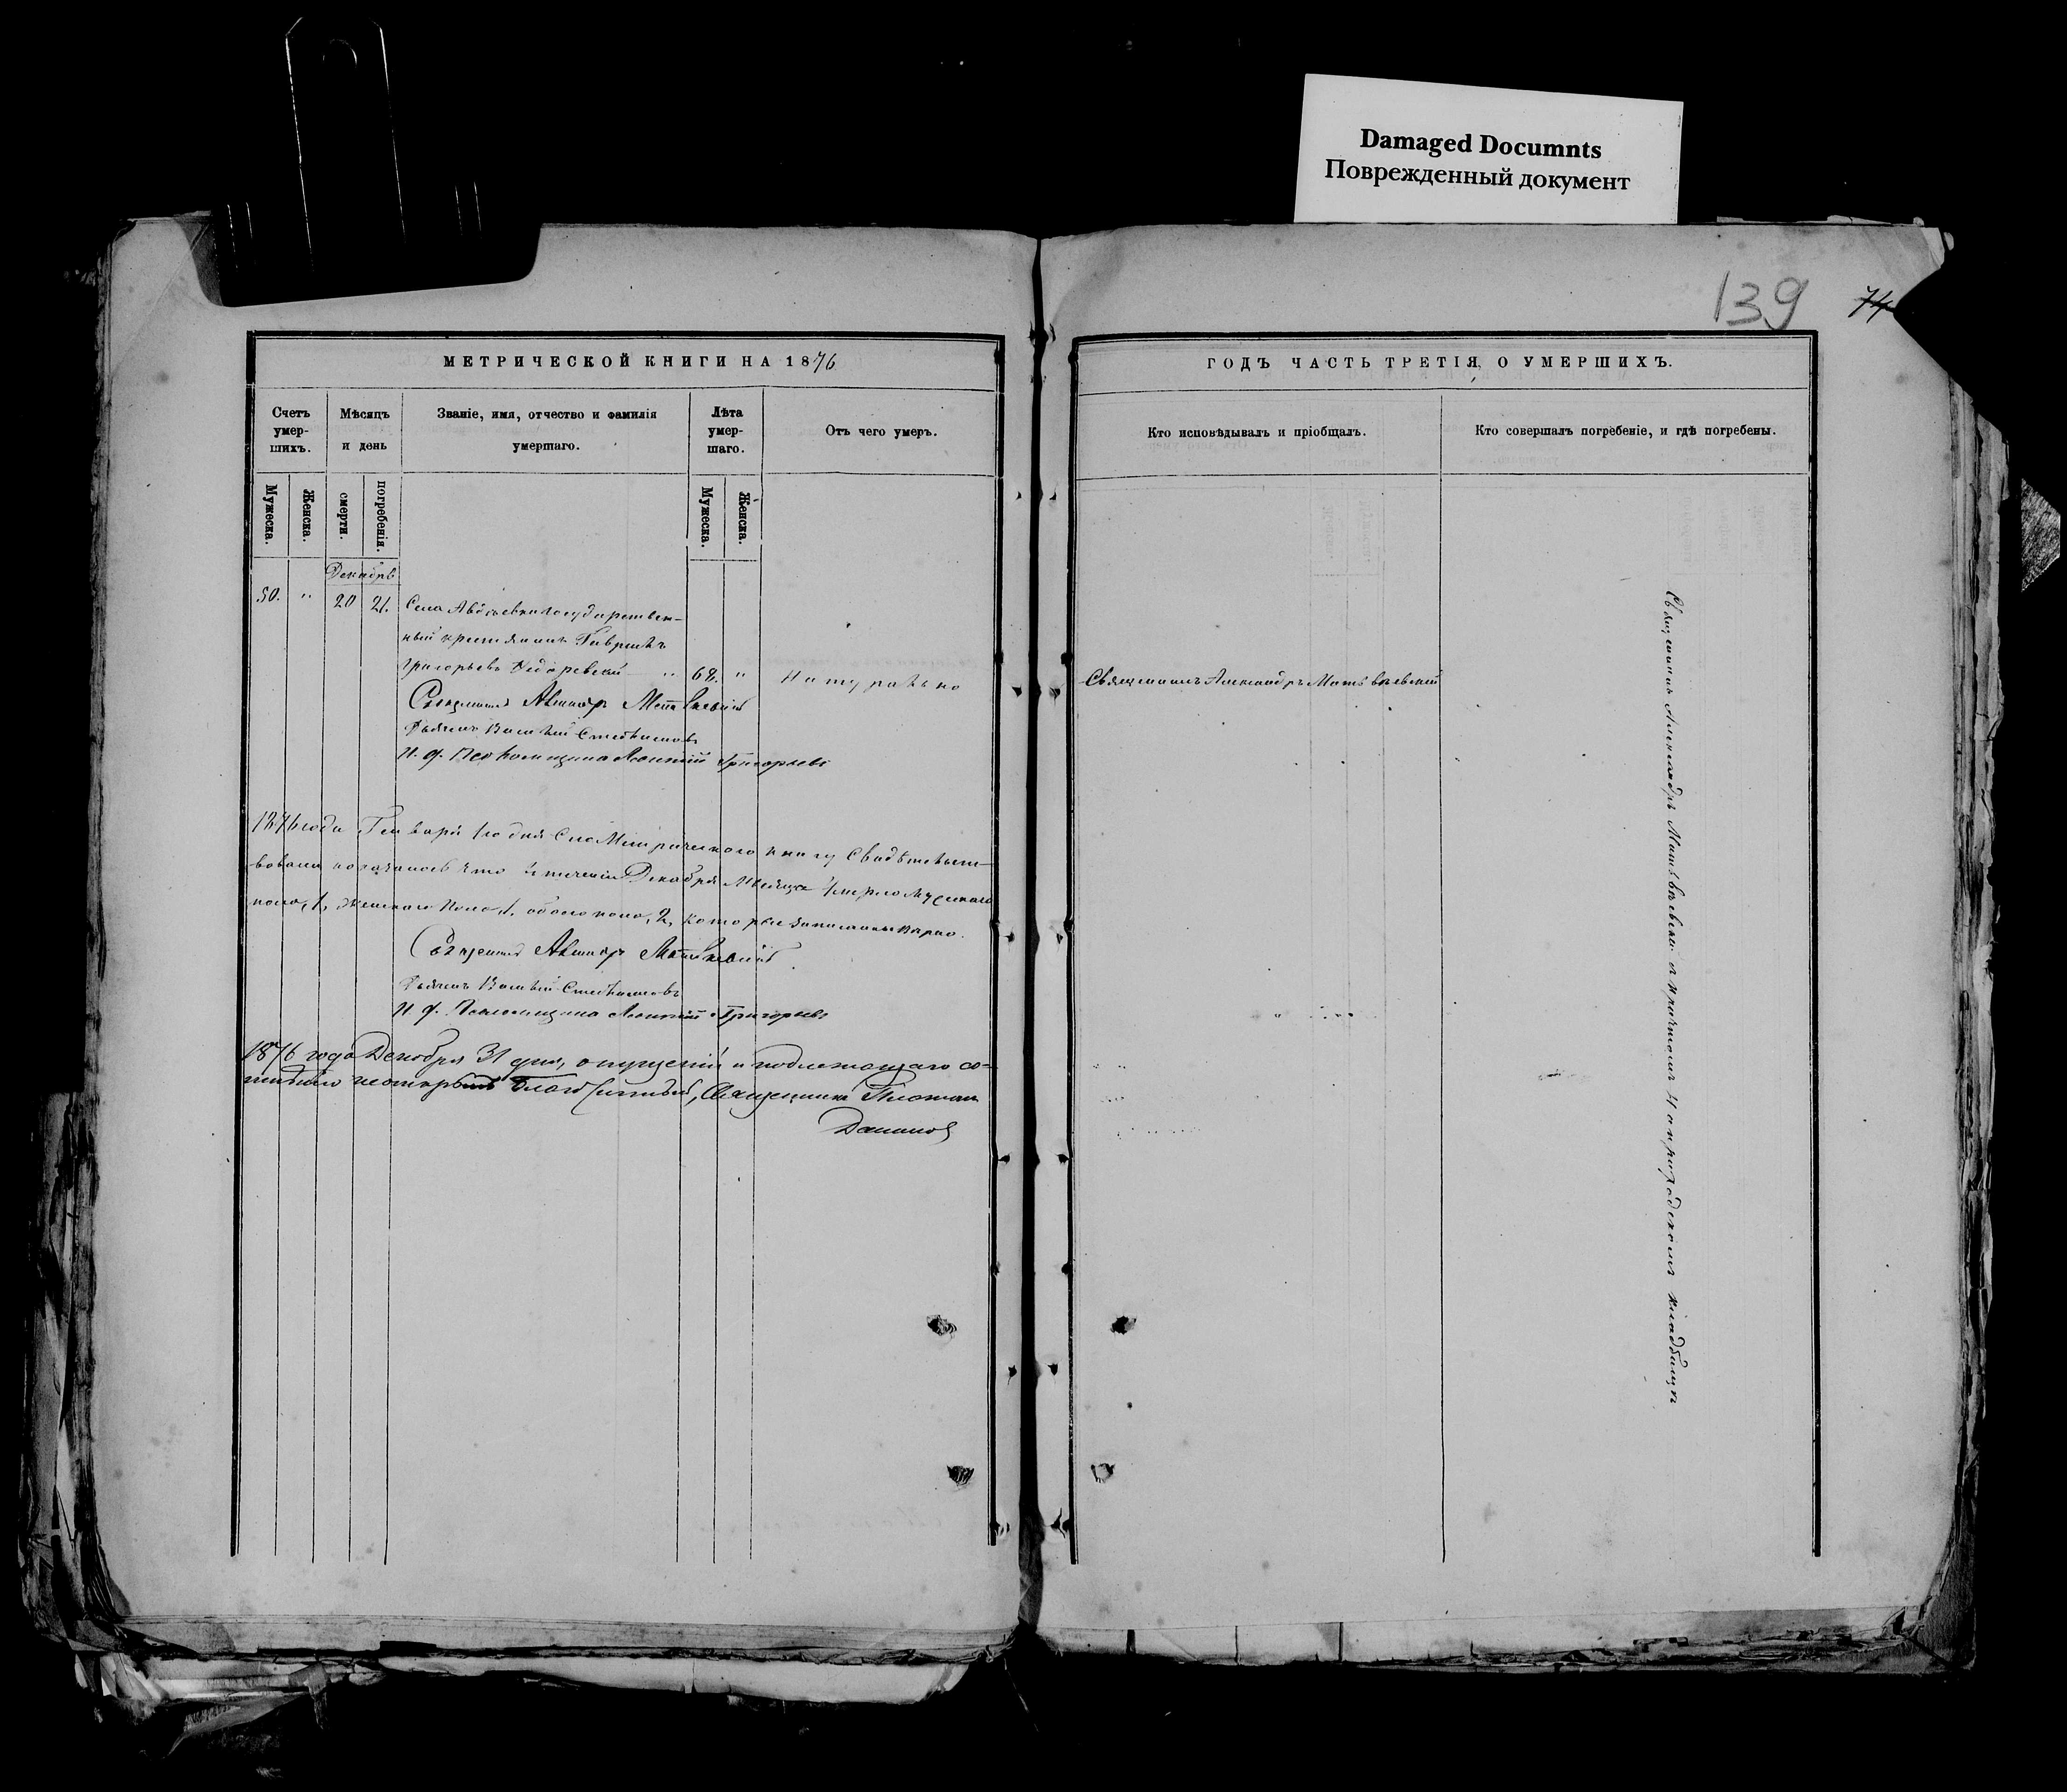 Damaged Documnts
Поврежденный документ
139
74
МЕТРИЧЕСКОЙ КНИГИ НА 1876
ГОДЪ ЧАСТЬ ТРЕТІЯ, О УМЕРШИХЪ.
Счетъ умер-шихъ.
Мѣсяцъ и день
Званіе, имя, отчество и фамилія умершаго.
Лѣта умер-шаго.
Отъ чего умеръ.
Кто исповѣдывалъ и пріобщалъ.
Кто совершалъ погребеніе, и гдѣ погребены.
Мужеска.
Женска.
смерти.
погребенія.
Мужеска.
Женска.
Декабрь
50. " 20 21. Села Авдѣевки государствен-
ный крестьянинъ Гавріилъ
Григорьевъ " 68. " Натурально
Священникъ Александръ Матвѣевскій
Священникъ Александръ Матвѣевскій
Дьячекъ Василій Стефановъ
И. д. Псаломщика Григорьевъ
Священникъ Александръ Матвѣевскій съ причтомъ На приходскомъ кладбищѣ
1876 года Генваря 1го дня Сію Метрическую книгу Свидѣтельст-
вовали что въ теченіи Декабря Мѣсяца Умерло Мужескаго
пола, 1, женскаго пола, 1, обоего пола, 2, которые записаны вѣрно.
Священникъ Александръ Матвѣевскій
Дьячекъ Василій Стефановъ
И. д. Псаломщика Григорьевъ
1876 года Декабря 31 дня, опущеній и подлежащаго со-
Священникъ Платонъ
Данилов